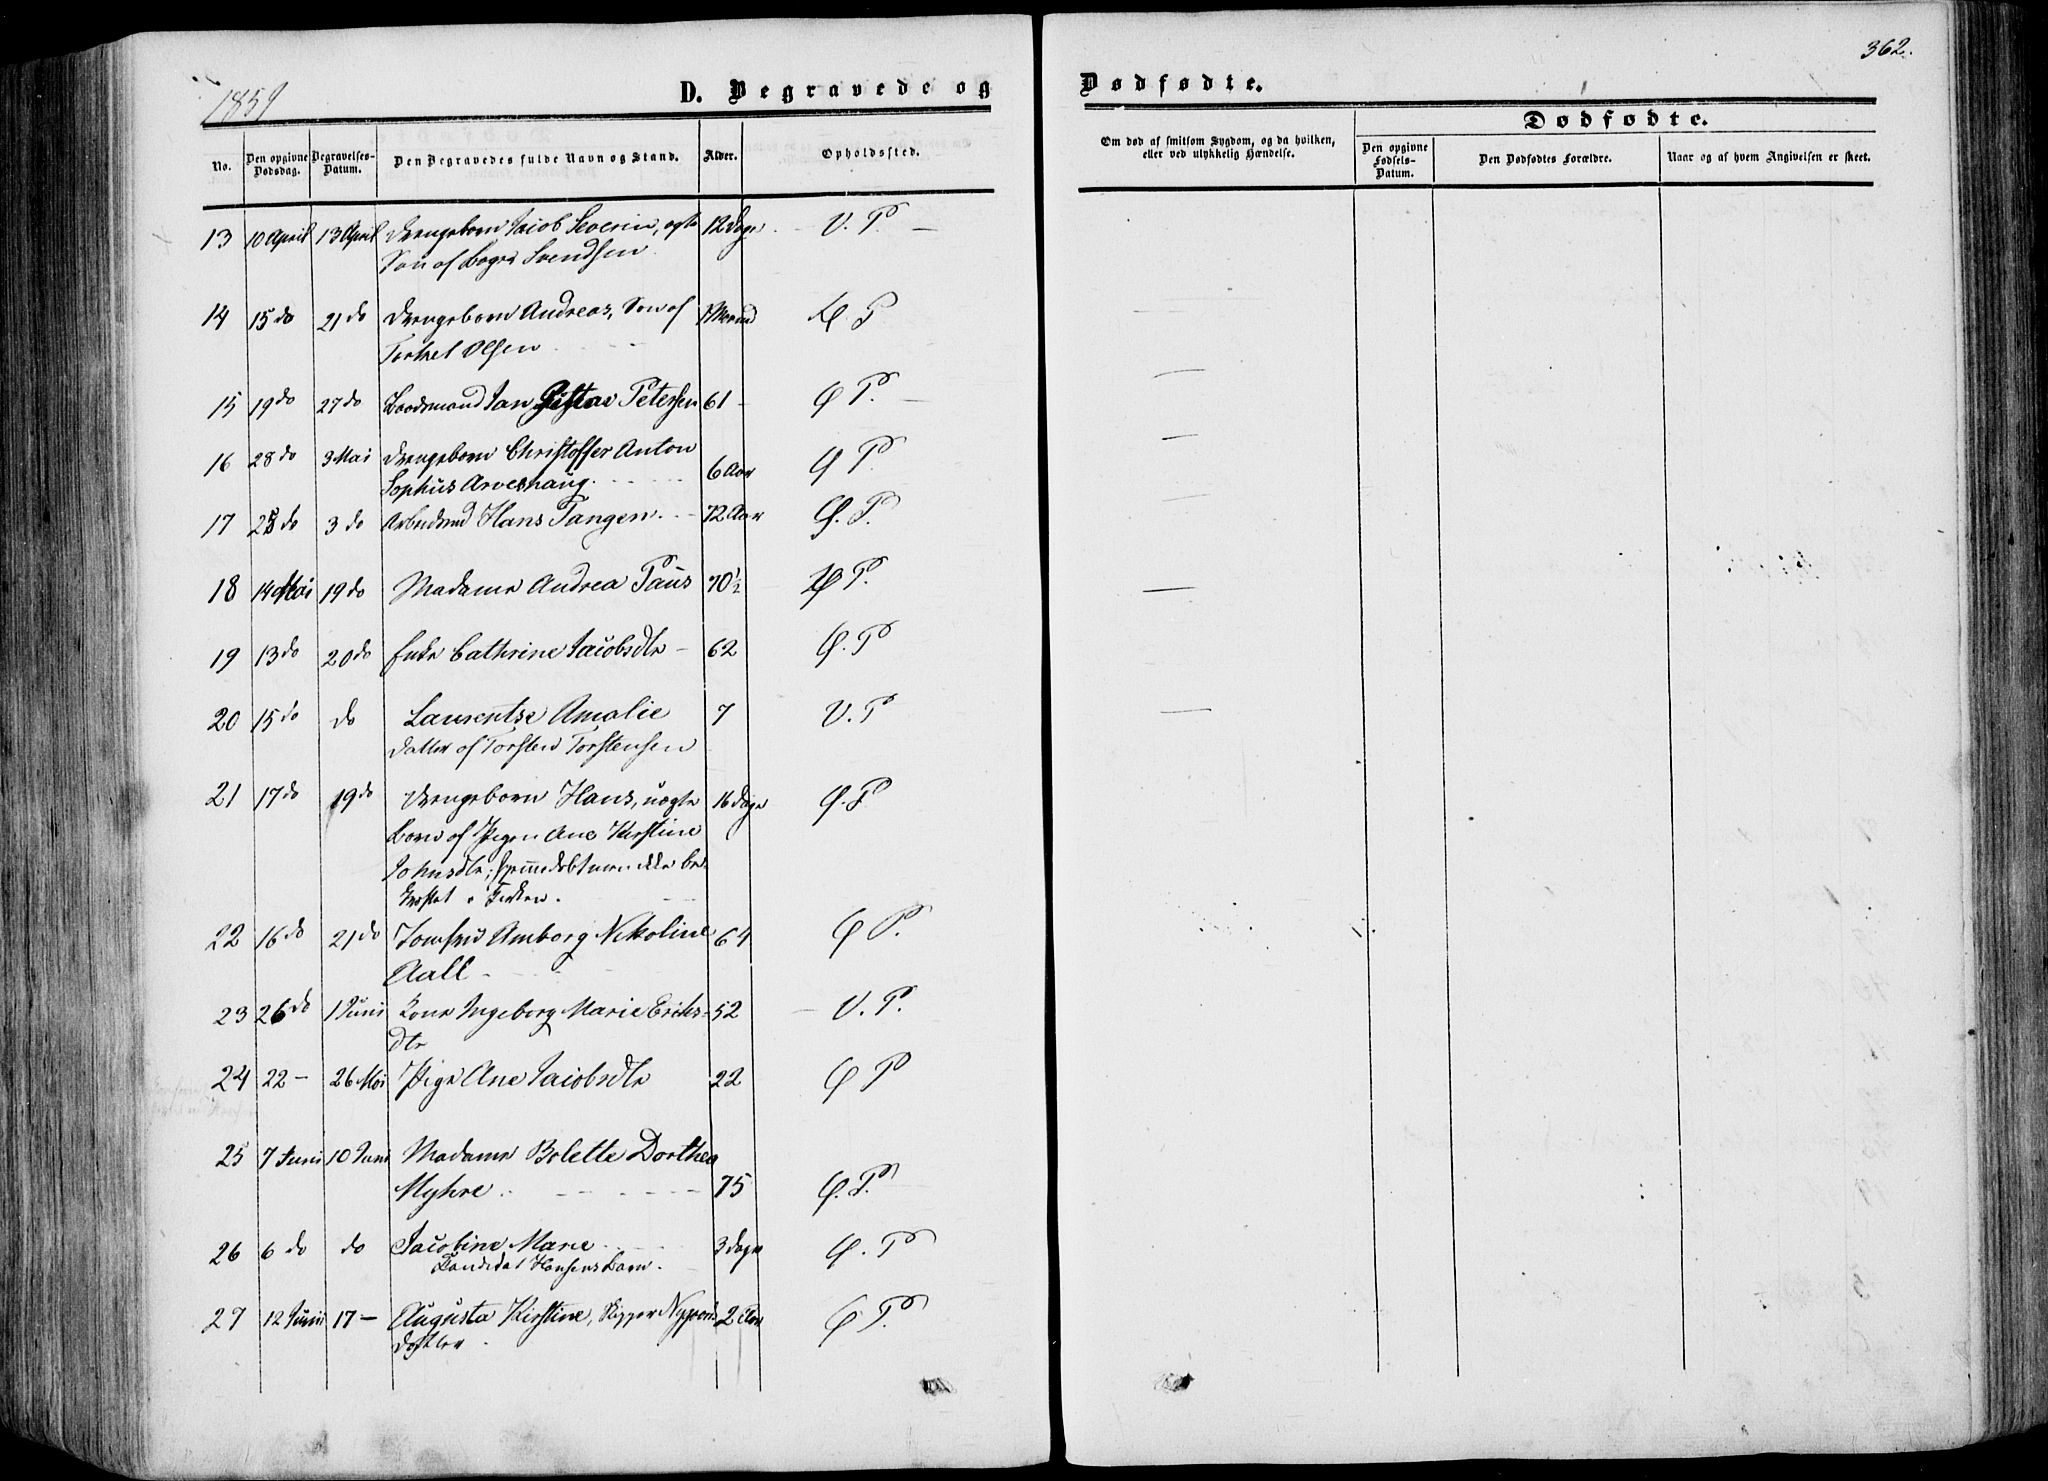 362.
1859
D. Begravede og Dødfødte.
Dødfødte.
No.
Den opgivne Dødsdag.
Begravelses-Datum.
Den Begravedes fulde Navn og Stand.
Alder.
Opholdssted.
Om død af smitsom Sygdom, og da hvilken, eller ved ulykkelig Hændelse.
Den opgivne Fødsels-Datum.
Den Dødfødtes Forældre.
Naar og af hvem Angivelsen er skeet.
13 10 April 13 April Drengebarn Jacob Severin, ægte 12 Dage V. P.
Søn af Svendsen
14 15 do 21 do Drengebarn Andreas, Søn af 1 Maaned P
Torkel Olsen
15 19 do 27 do Baadsmand Jan Gustav Petersen 61 Ø P.
16 28 do 3 Mai Drengebarn Christoffer Anton
Sophus Arveshaug. 6 Aar Ø P.
17 28 do 3 do Arbeidsmd Hans Tangen. 72 Aar Ø. P.
18 14 Mai 19 do Madame Andrea Paus 70½ P.
19 13 do 20 do Enke Cathrine Jacobsdtr 62 Ø. P
20 15 do do Laurentse Amalie 7 V. P
Datter af Torsten Torstensen
21 17 do 19 do Drengebarn Hans, uægte 16 Dage Ø. P
Barn af Pigen Ane Kirstine
Johnsdtr; hjemmedøbt men ikke be-
kræftet i Kirken.
22 16 do 21 do Jomfru Amborg Nikoline 64 Ø P.
Aall
23 26 do 1 Juni Kone Ingeborg Marie Erichs= 52 V. P.
dtr
24 22 – 26 Mai Pige Ane Jacobsdtr 22 Ø P
25 7 Juni 10 Juni Madame Bolette Dorthea
Myhre 75 Ø. P.
26 6 do do Jacobine Marie 3 Dage Ø. P
Candidat Hansens Barn.
27 12 Juni 17 – Augusta Kirstine, Skipper 2 Aar Ø P.
Datter